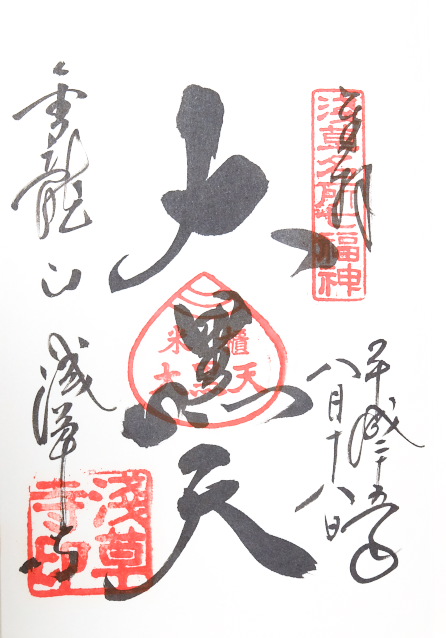 奉拝
浅草名所七福神
平成二十五年
八月十八日
大黒天
米櫃
大黒天
金龍山
浅草寺
淺草
寺印